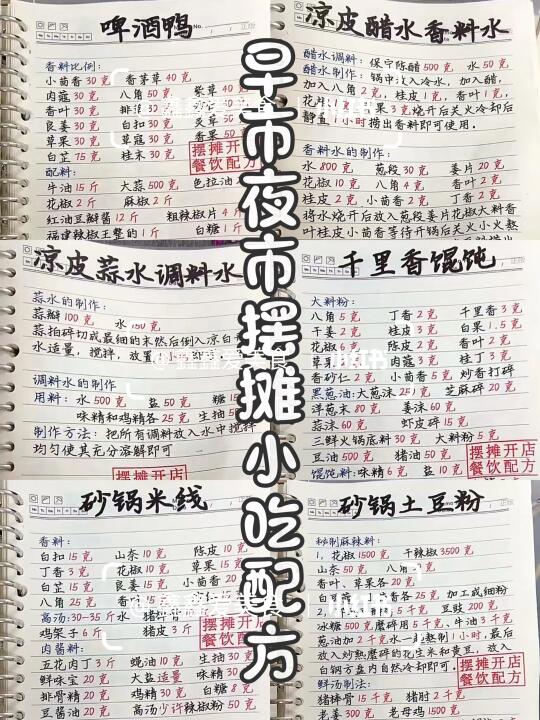 早市夜市摆摊小吃配方
啤酒鸭
香料比例:
小茴香30克 香茅草40克
肉蔻30克 八角50克 紫草40克
香叶30克
良姜30克 白扣30克
草果30克 草蔻30克 香果50克
白芷75克 桂末30克
摆摊开店
餐饮配方
配料:
牛油15斤 大蒜500克 色拉油
花椒2斤 麻椒2斤
红油豆瓣酱12斤 粗辣椒片4斤
福建辣椒王整的1斤 白糖1斤
凉皮醋水香料水
醋水调料:保宁陈醋500克 水50克
醋水制作:锅中放入冷水,加入醋,
加入八角2克,桂皮1克,香叶1克,
果3克,烧开后关火冷却后
静置1小时捞出香料即可使用.
香料水的制作:
水800克 葱段30克 姜片20克
花椒10克 八角4克 香叶2克
桂皮2克 小茴香2克 丁香2克
将水烧开后放入葱段姜片花椒大料香
叶桂皮小茴香等待开锅后关小火熬
凉皮蒜水调料水
蒜水的制作:
蒜瓣100克 水150克
蒜拍碎切成最细的末然后倒入凉白
水适量,搅拌,放置
调料水的制作
用料:水500克 盐50克 糖
味精和鸡精各25克 生抽
制作方法:把所有调料放入水中搅拌
均匀使其充分溶解即可
摆摊开店
千里香馄饨
大料粉:
八角5克 丁香2克 千里香3克
干姜2克 桂皮3克 白果1.5克
花椒6克 陈皮2克 香叶2克
肉蔻3克 桂丁3克
香砂仁2克 小茴香5克 炒香打碎
黑葱油:大葱沫25克 芝麻碎20克
洋葱末80克 姜沫60克
蒜沫60克 虾皮碎15克
三鲜火锅底料30克 大料粉5克
豆油500克 猪油50克
馄饨料:味精6克 盐10克
摆摊开店
餐饮配方
砂锅米线
香料:
白扣15克 山奈10克 陈皮10克
丁香3克 花椒15克 草果15克
白芷15克 良姜15克 小茴香20克
八角25克
高汤:30-35斤水
鸡架子6斤 猪皮3斤
摆摊开店
餐饮配方
肉酱料:
五花肉丁3斤 蚝油10克 生抽30克
鲜味宝20克 大盐适量 味精30克
排骨精20克 鸡精30克 白糖8克
豆酱油20克 高汤少许辣椒粉50克
砂锅土豆粉
秘制麻辣料:
1,花椒1500克 干辣椒3500克
山奈50克 八角
香叶、草果各20克
各25克 加工成细粉
5千克 豆豉200克
冰糖500克磨碎用5千克、牛油3千克
葱油加2千克水一起熬制1小时,最后
放入炒熟磨碎的花生米和黄豆,放入
白钢方盘内自然冷却即可.
摆摊开店
餐饮配方
鲜汤制法:
猪棒骨15千克 猪肘2千克
老姜300克 老母鸡1500克
@鑫鑫爱美食
小红书